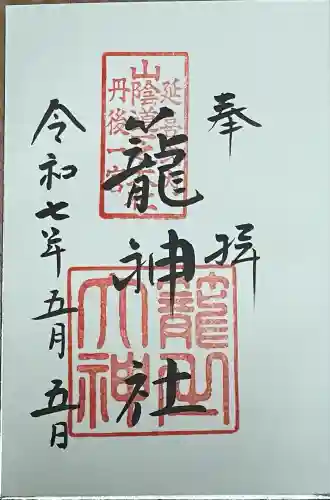 奉拝
延喜
山陰道
丹後一宮
籠神社
籠之
大神
令和七年五月五日